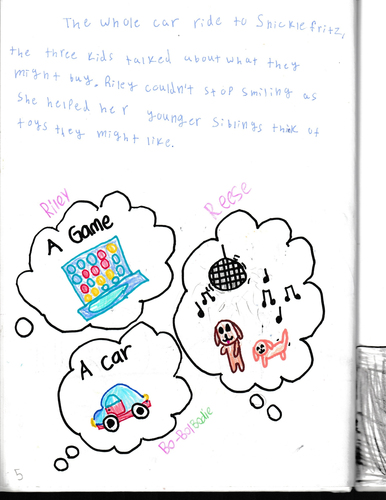 The whole car ride to Snicklefritz,
the three kids talked about what they
might buy. Riley couldn't stop smiling as
she helped her younger siblings think of
toys they might like.
Riley
Reese
A Game
A car
Bo-Bo/Bodie
5